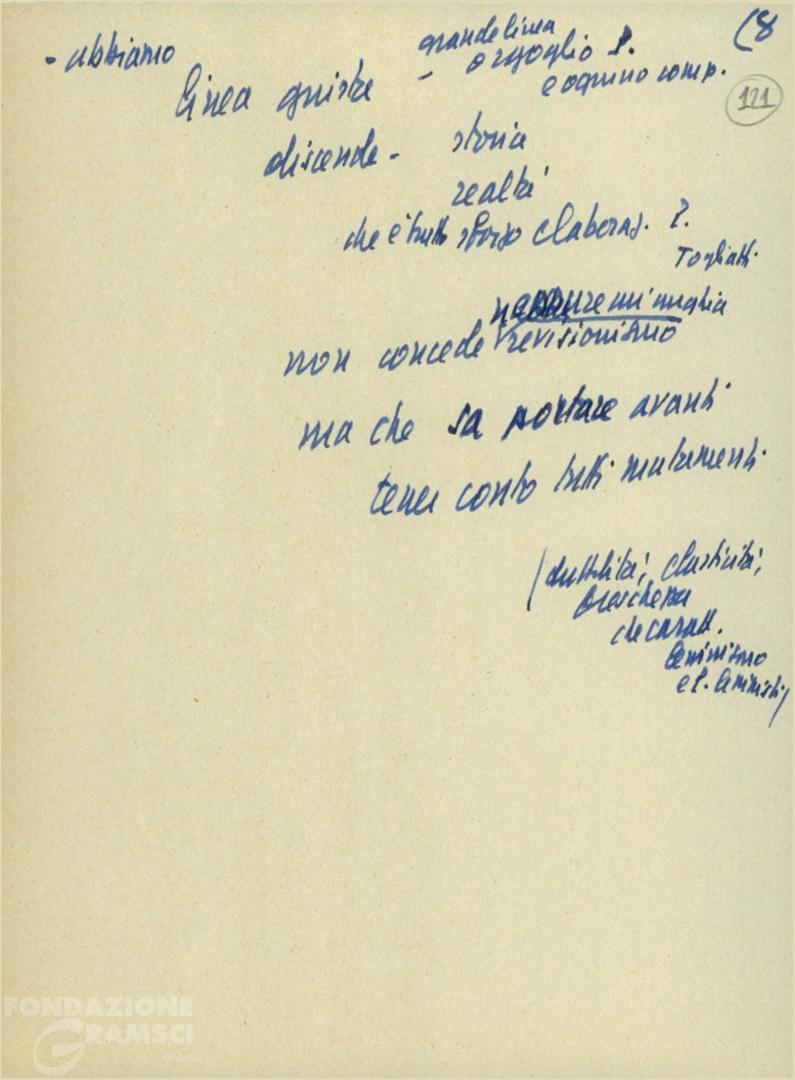 (8
121
- abbiamo
grande linea
linea giusta - orgoglio P.
e ognuno comp.
discende - storia
realtà
che è tutto sforzo elaboraz. P.
Togliatti
neppure un'unghia
non concede revisionismo
ma che sa portare avanti
tener conto tutti mutamenti
(duttilità, elasticità,
freschezza
che caratt.
leninismo
e P. leninisti)
FONDAZIONE
GRAMSCI